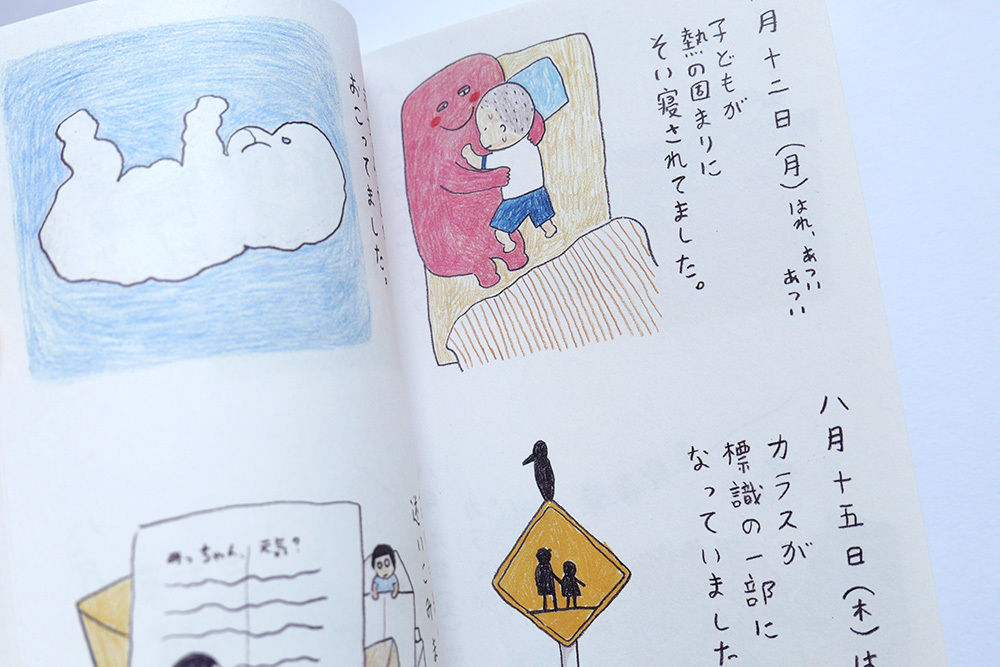 月十二日(月)はれ、あつい
あつい
子どもが
熱の固まりに
そい寝されてました。
八月十五日(木)は
カラスが
標識の一部に
なっていました
おこってました。
っちゃん、元気?